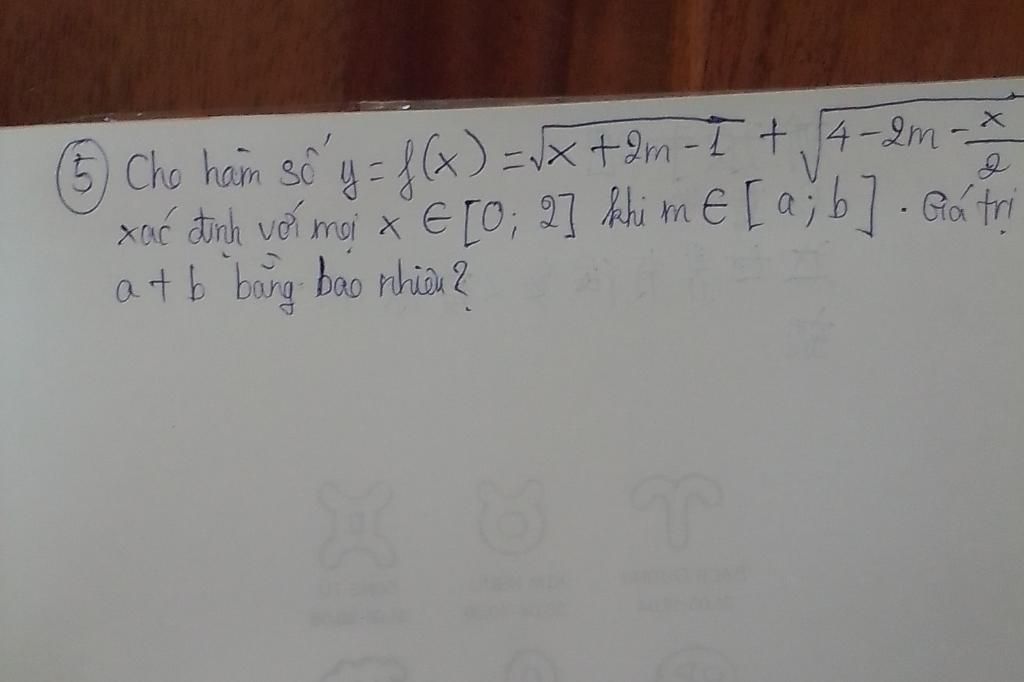 ⑤ Cho hàm số y = f(x) = √(x + 2m - 1) + √(4 - 2m - x/2)
xác định với mọi x ∈ [0; 2] khi m ∈ [a; b]. Giá trị
a + b bằng bao nhiêu?